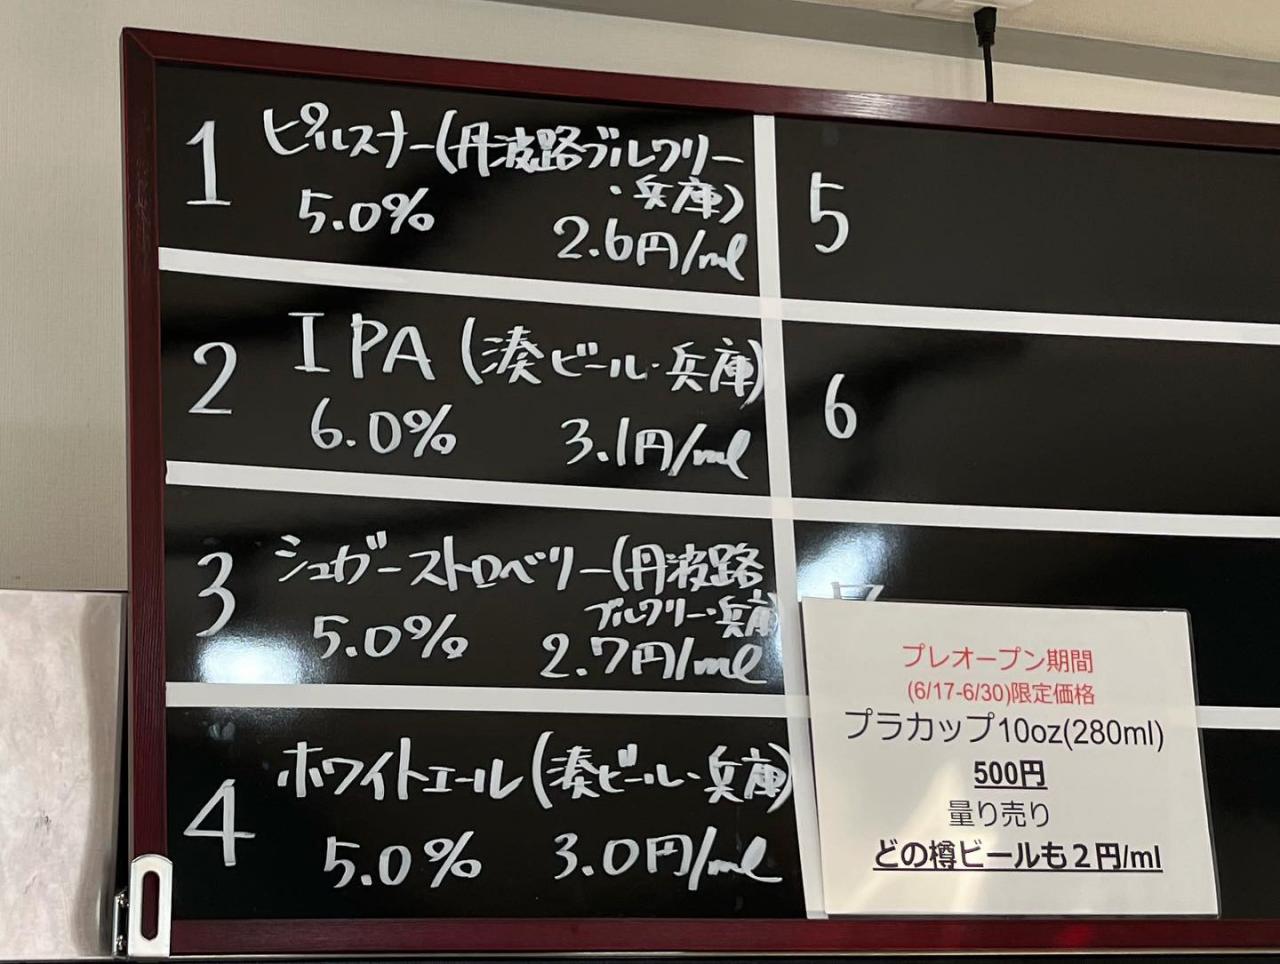 1 ピルスナー(丹波路ブルワリー
・兵庫)
5.0% 2.6円/ml
2 IPA (湊ビール・兵庫)
6.0% 3.1円/ml
3 シュガーストロベリー(丹波路
ブルワリー・兵庫
5.0% 2.7円/ml
4 ホワイトエール(湊ビール・兵庫)
5.0% 3.0円/ml
5
6
プレオープン期間
(6/17-6/30)限定価格
プラカップ10oz(280ml)
500円
量り売り
どの樽ビールも2円/ml